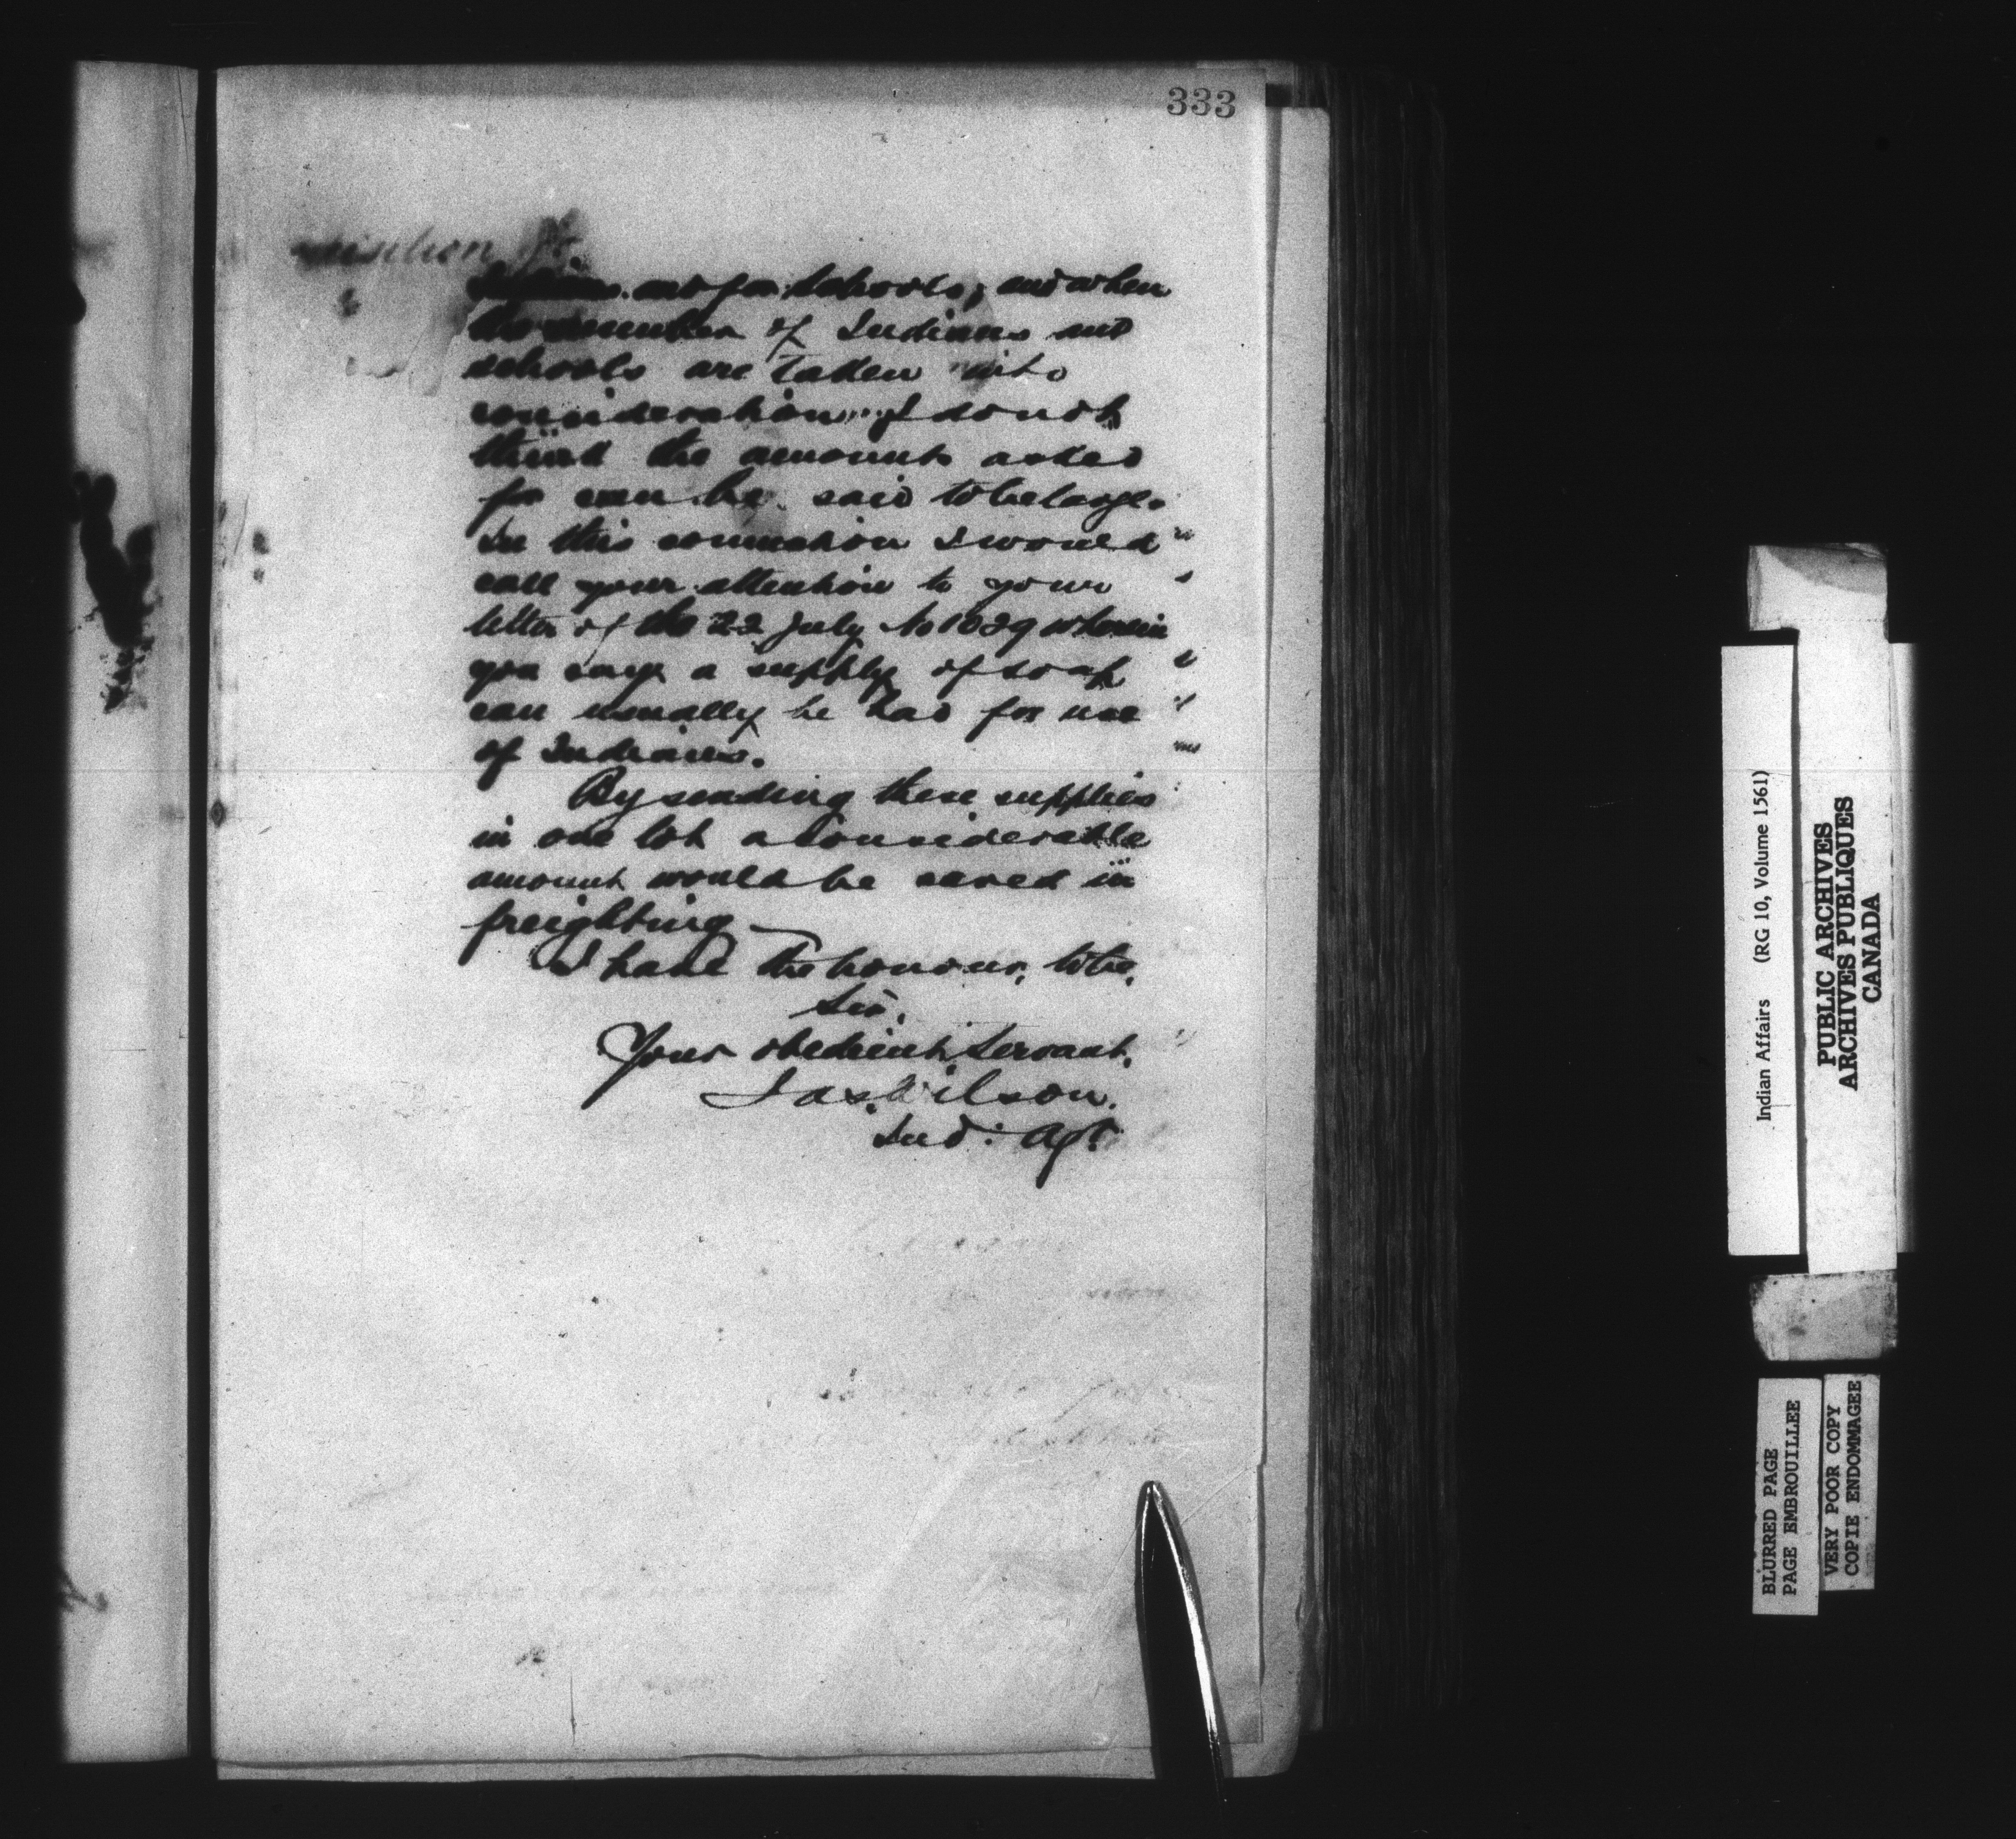 333
Indians and for schools, and when
the number of Indians and
schools are taken into
consideration, I do not
think the amount asked
for can be said to be large.
In this connection I would
call your attention to your
letter of the 22 July No 1039 wherein
you say a supply of soap
can usually be had for use
of Indians.
By sending these supplies
in one lot a considerable
amount would be saved in
freighting
I have the honour to be,
Sir,
Your obedient Servant.
Jas. Wilson.
Ind: Agt.
Indian Affairs (RG 10, Volume 1561)
PUBLIC ARCHIVES
ARCHIVES PUBLIQUES
CANADA
BLURRED PAGE
PAGE EMBROUILLEE
VERY POOR COPY
COPIE ENDOMMAGEE